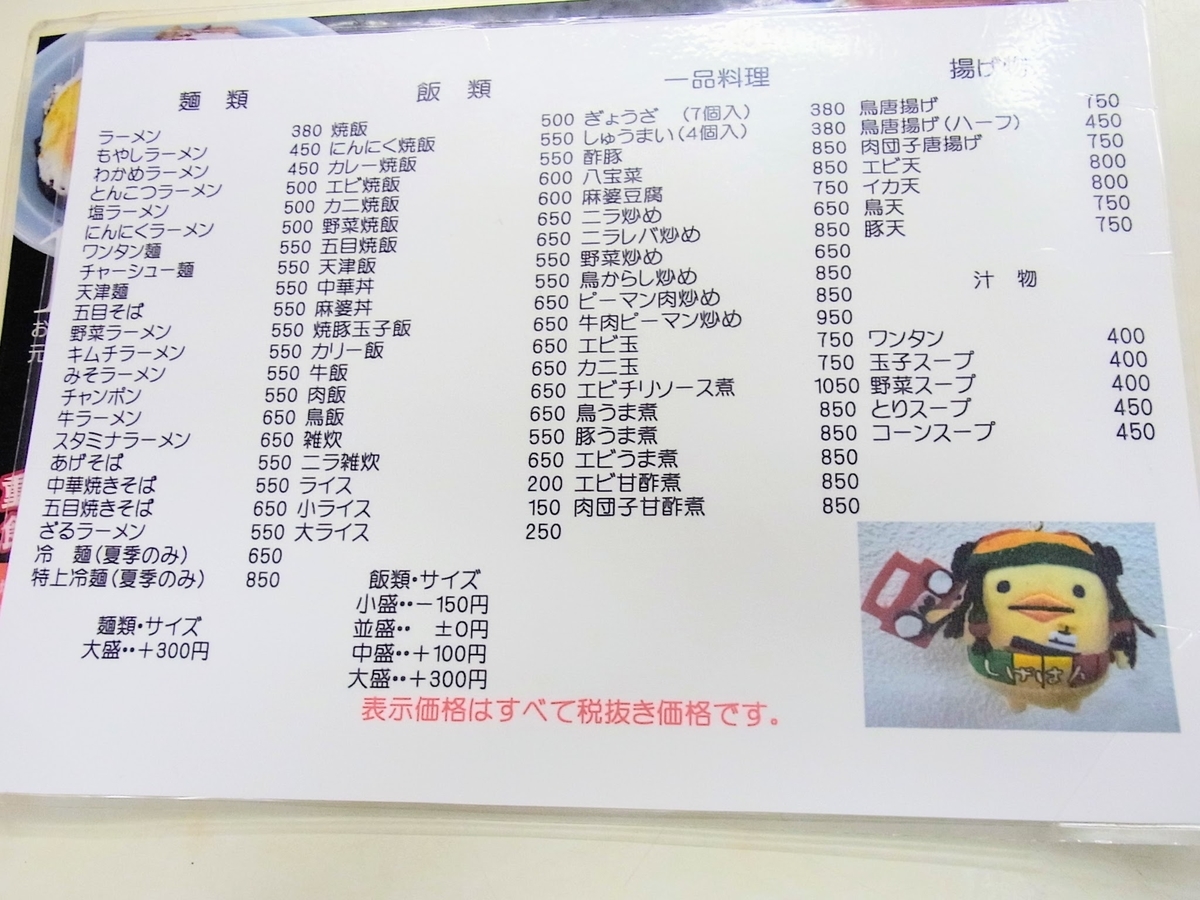 麺 類
ラーメン 380
もやしラーメン 450
わかめラーメン 450
とんこつラーメン 500
塩ラーメン 500
にんにくラーメン 500
ワンタン麺 550
チャーシュー麺 550
天津麺 550
五目そば 550
野菜ラーメン 550
キムチラーメン 550
みそラーメン 550
チャンポン 550
牛ラーメン 650
スタミナラーメン 650
あげそば 550
中華焼きそば 550
五目焼きそば 650
ざるラーメン 550
冷 麺(夏季のみ) 650
特上冷麺(夏季のみ) 850
麺類・サイズ
大盛・・+300円
飯 類
焼飯 500
にんにく焼飯 550
カレー焼飯 550
エビ焼飯 600
カニ焼飯 600
野菜焼飯 650
五目焼飯 650
天津飯 550
中華丼 550
麻婆丼 650
焼豚玉子飯 650
カリー飯 650
牛飯 650
肉飯 650
鳥飯 650
雑炊 550
ニラ雑炊 650
ライス 200
小ライス 150
大ライス 250
飯類・サイズ
小盛・・-150円
並盛・・ ±0円
中盛・・+100円
大盛・・+300円
一品料理
ぎょうざ (7個入) 380
しゅうまい(4個入) 380
酢豚 850
八宝菜 850
麻婆豆腐 750
ニラ炒め 650
ニラレバ炒め 850
野菜炒め 650
鳥からし炒め 850
ピーマン肉炒め 850
牛肉ピーマン炒め 950
エビ玉 750
カニ玉 750
エビチリソース煮 1050
鳥うま煮 850
豚うま煮 850
エビうま煮 850
エビ甘酢煮 850
肉団子甘酢煮 850
揚げ物
鳥唐揚げ 750
鳥唐揚げ(ハーフ) 450
肉団子唐揚げ 750
エビ天 800
イカ天 800
鳥天 750
豚天 750
汁 物
ワンタン 400
玉子スープ 400
野菜スープ 400
とりスープ 450
コーンスープ 450
表示価格はすべて税抜き価格です。
お
元